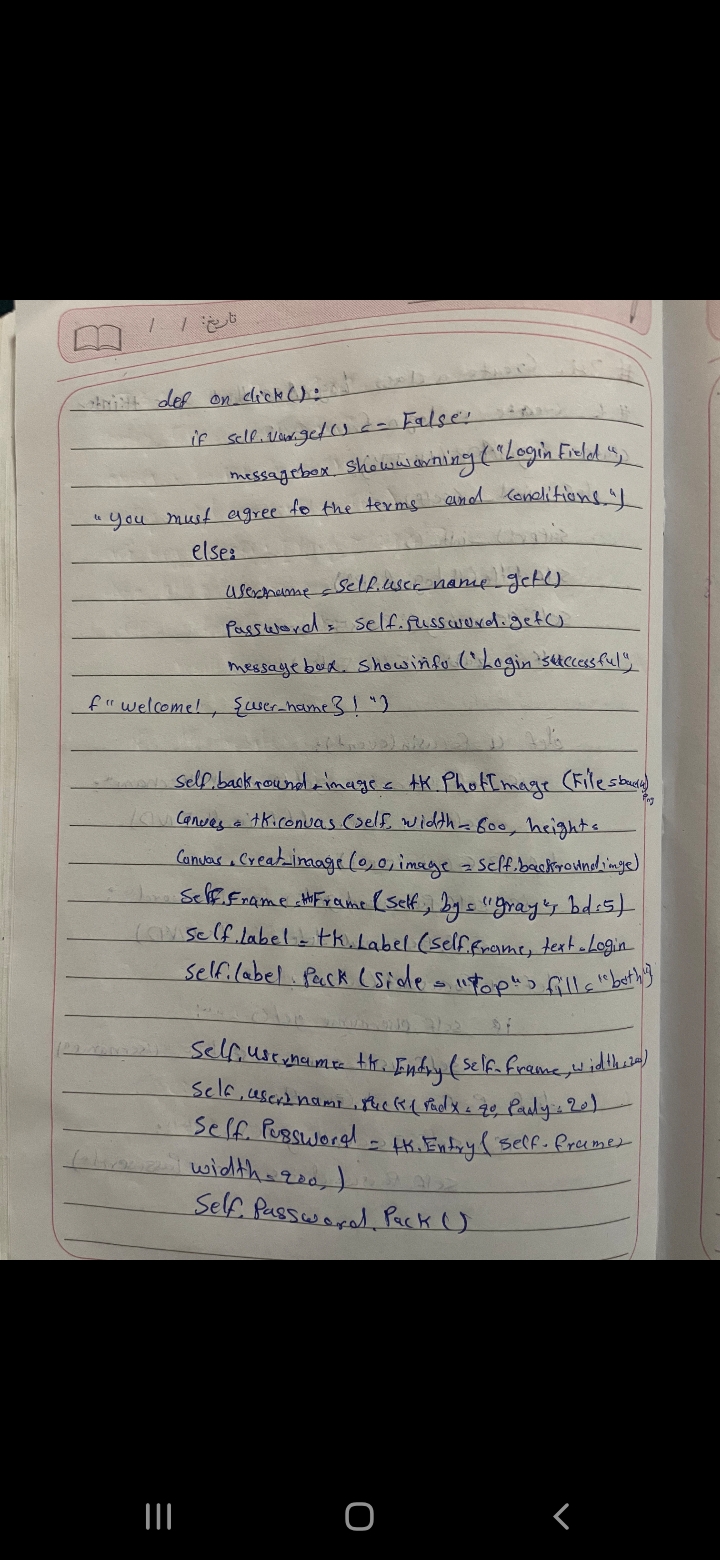 تاريخ: / /
def on_click():
if self.var.get() == False:
messagebox. showwarning ("Login Field",
"you must agree to the terms and conditions.")
else:
username = self.user_name_get()
Password = self.Password.get()
messagebox. showinfo ("Login successful",
f"welcome!, {user_name}! ")
self.backround_image = tk.PhotImage (File=
png
Canvas = tk.canvas (self, width=600, height=
Canvas.creat_image (0,0, image = self.backroundimge)
Self.Frame = tkFrame (self, bg = "gray", bd=5)
self.label = tk.Label (self.frame, text=Login
self.label.Pack (side = "Top", fill = "both")
Self.username= tk.Entry (self.frame, width=200)
Self.username.Pack (Padx=20, Pady=20)
Self.Password = tk.Entry( self.frame,
width=200, )
Self.Password.Pack ()